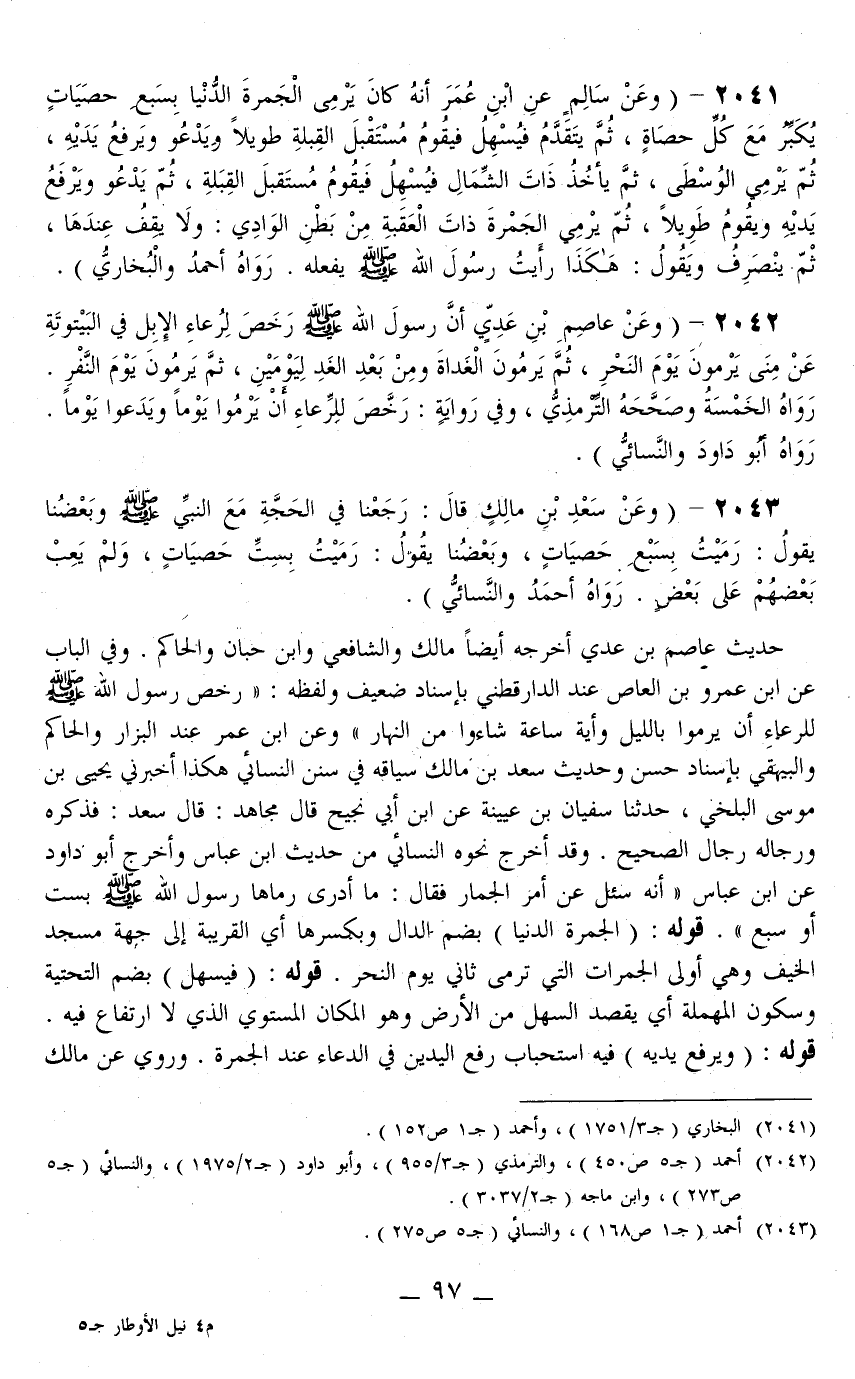 ٢٠٤١ – ( وعَنْ سَالِمٍ عنِ ابْنِ عُمَرَ أنهُ كانَ يَرْمِى الْجَمرةَ الدُّنْيا بِسَبعِ حصَيَاتٍ
يُكَبِّرُ مَعَ كُلِّ حصاةٍ ، ثُمَّ يتَقَدَّمُ فيُسْهِلُ فيقُومُ مُسْتَقْبلَ القِبلةِ طويلاً ويَدْعُو ويَرفعُ يَدَيْهِ ،
ثُمّ يَرْمِي الوُسْطَى ، ثمَّ يأخُذُ ذَاتَ الشِّمَالِ فيُسْهِلُ فَيقُومُ مُستَقبلَ القِبَلةِ ، ثُمّ يَدْعُو ويَرْفَعُ
يَديْهِ ويقُومُ طَوِيلاً ، ثُمّ يرْمِي الجَمْرةَ ذاتَ الْعَقَبةِ مِنْ بَطْنِ الوَادِي : ولَا يقِفُ عِندَهَا ،
ثْمّ ينْصَرِفُ ويَقُولُ : هٰكَذَا رأَيتُ رسُولَ الله ﷺ يفعله . رَوَاهُ أحمدُ والْبُخاريُّ ) .
٢٠٤٢ – ( وعَنْ عاصِمِ بْنِ عَدِيّ أنَّ رسولَ الله ﷺ رَخَصَ لِرُعاءِ الإِبل في البَيْتوتَةِ
عَنْ مِنَى يَرْمونَ يَوْمَ النَحْرِ ، ثُمَّ يَرمُونَ الْغَداةَ ومِنْ بَعْدِ الغَدِ لِيَوْمَيْنِ ، ثمَّ يَرمُونَ يَوْمَ النَّفْرِ .
رَوَاهُ الخَمْسَةُ وصَحَّحَهُ التِّرْمذِيُّ ، وفي رَوايَةٍ : رَخَّصَ للرِّعاءِ أَنْ يَرْمُوا يَوْماً ويَدَعوا يَوْماً .
رَوَاهُ أَبُو دَاودَ والنَّسائيُّ ) .
٢٠٤٣ – ( وعَنْ سَعْدِ بْنِ مالِكٍ قالَ : رَجَعْنا في الحَجَّةِ مَعَ النبيِّ ﷺ وبَعْضُنا
يقولُ : رَمَيْتُ بِسَبْعِ حَصيَاتٍ ، وبَعْضُنا يقُوّلُ : رَمَيْتُ بِستِّ حَصياتٍ ، وَلمْ يَعِبْ
بَعْضهُمْ عَلى بَعْضٍ . رَوَاهُ أحمَدُ والنَّسائيُّ ) .
حديث عاصم بن عدي أخرجه أيضاً مالك والشافعي وابن حبان والحاكم . وفي الباب
عن ابن عمرو بن العاص عند الدارقطني بإسناد ضعيف ولفظه : « رخص رسول الله ﷺ
للرعاء أن يرموا بالليل وأية ساعة شاءوا من النهار » وعن ابن عمر عند البزار والحاكم
والبيهقي بإسناد حسن وحديث سعد بن مالك سياقه في سنن النسائي هكذا أخبرني يحيى بن
موسى البلخي ، حدثنا سفيان بن عيينة عن ابن أبي نجيح قال مجاهد : قال سعد : فذكره
ورجاله رجال الصحيح . وقد أخرج نحوه النسائي من حديث ابن عباس وأخرج أبو داود
عن ابن عباس « أنه سئل عن أمر الجمار فقال : ما أدرى رماها رسول الله ﷺ بست
أو سبع » . قوله : ( الجمرة الدنيا ) بضم الدال وبكسرها أي القريبة إلى جهة مسجد
الخيف وهي أولى الجمرات التي ترمى ثاني يوم النحر . قوله : ( فيسهل ) بضم التحتية
وسكون المهملة أي يقصد السهل من الأرض وهو المكان المستوي الذي لا ارتفاع فيه .
قوله : ( ويرفع يديه ) فيه استحباب رفع اليدين في الدعاء عند الجمرة . وروي عن مالك
(٢٠٤١) البخاري ( جـ١٧٥١/٣ ) ، وأحمد ( جـ١ ص١٥٢ ) .
(٢٠٤٢) أحمد ( جـ٥ ص٤٥٠ ) ، والترمذي ( جـ٩٥٥/٣ ) ، وأبو داود ( جـ١٩٧٥/٢ ) ، والنسائي ( جـ٥
ص٢٧٣ ) ، وابن ماجه ( جـ٣٠٣٧/٢ ) .
(٢٠٤٣) أحمد ( جـ١ ص١٦٨ ) ، والنسائي ( جـ٥ ص٢٧٥ ) .
– ٩٧ –
م٤ نيل الأوطار جـ٥